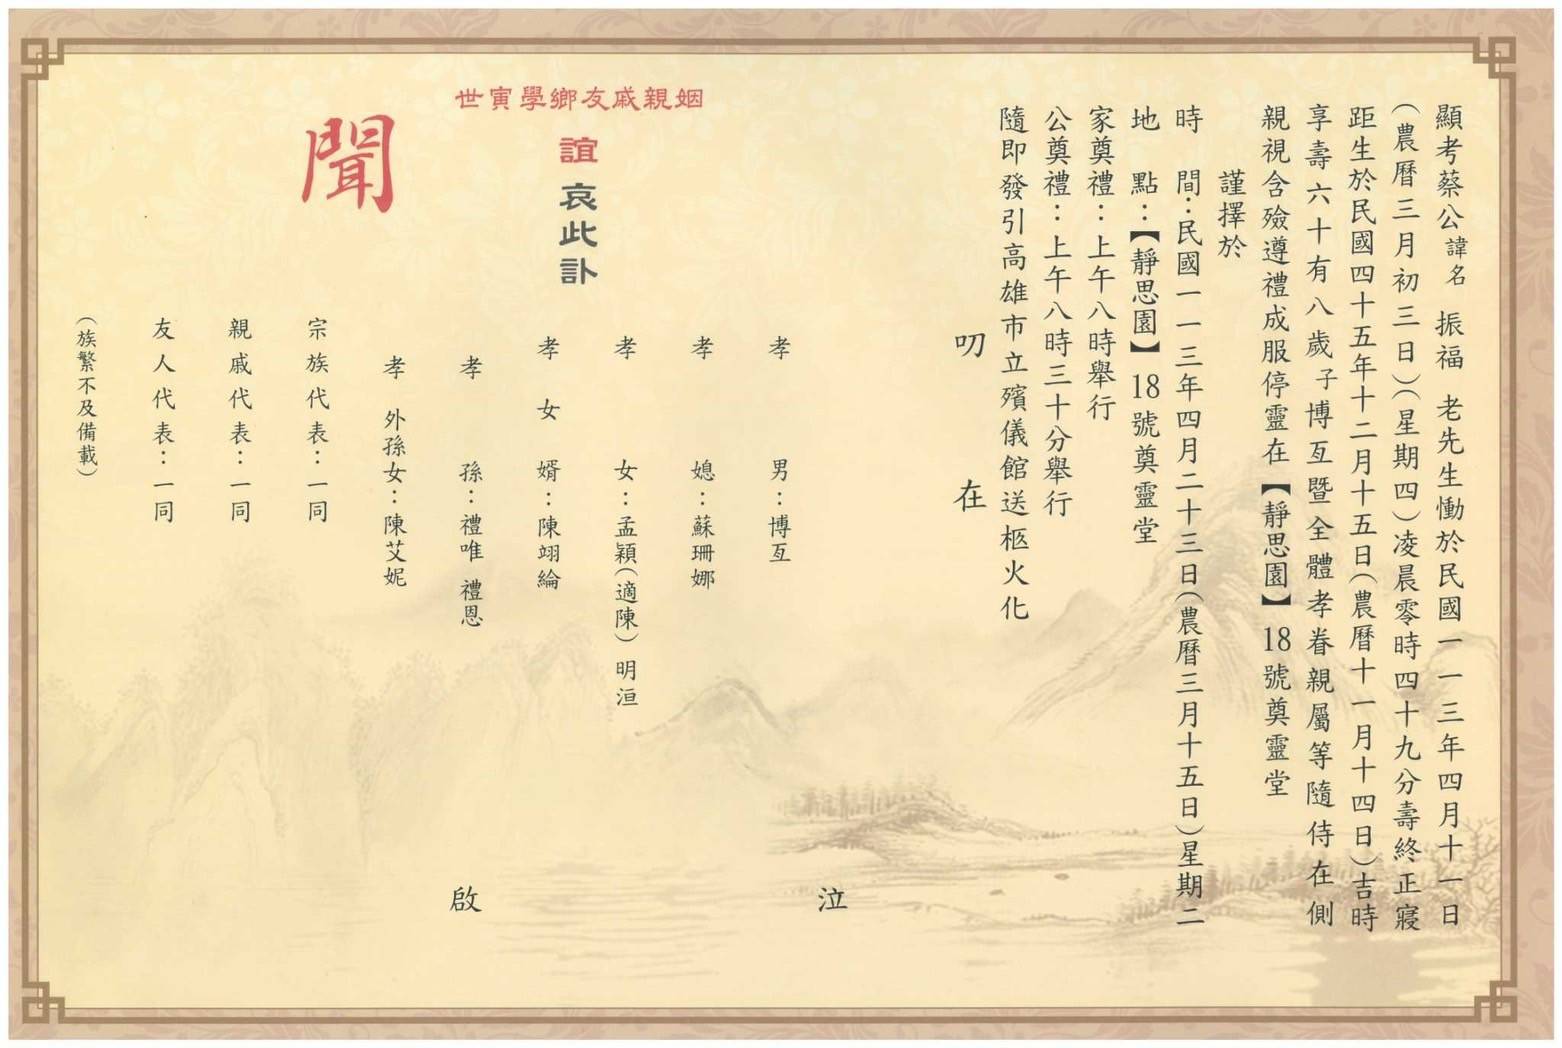 顯考蔡公諱名振福 老先生慟於民國一一三年四月十一日
(農曆三月初三日)(星期四)凌晨零時四十九分壽終正寢
距生於民國四十五年十二月十五日(農曆十一月十四日)吉時
享壽六十有八歲子博亙暨全體孝眷親屬等隨侍在側
親視含殮遵禮成服停靈在【靜思園】18號奠靈堂
謹擇於
時 間:民國一一三年四月二十三日(農曆三月十五日)星期二
地 點:【靜思園】18號奠靈堂
家奠禮:上午八時舉行
公奠禮:上午八時三十分舉行
隨即發引高雄市立殯儀館送柩火化
叨 在
泣
姻親戚友鄉學寅世
誼 哀此訃
聞
孝 男:博亙
孝 媳:蘇珊娜
孝 女:孟穎(適陳) 明洹
孝 女 婿:陳翊綸
孝 孫:禮唯 禮恩
孝 外孫女:陳艾妮
啟
宗族代表:一同
親戚代表:一同
友人代表:一同
(族繁不及備載)